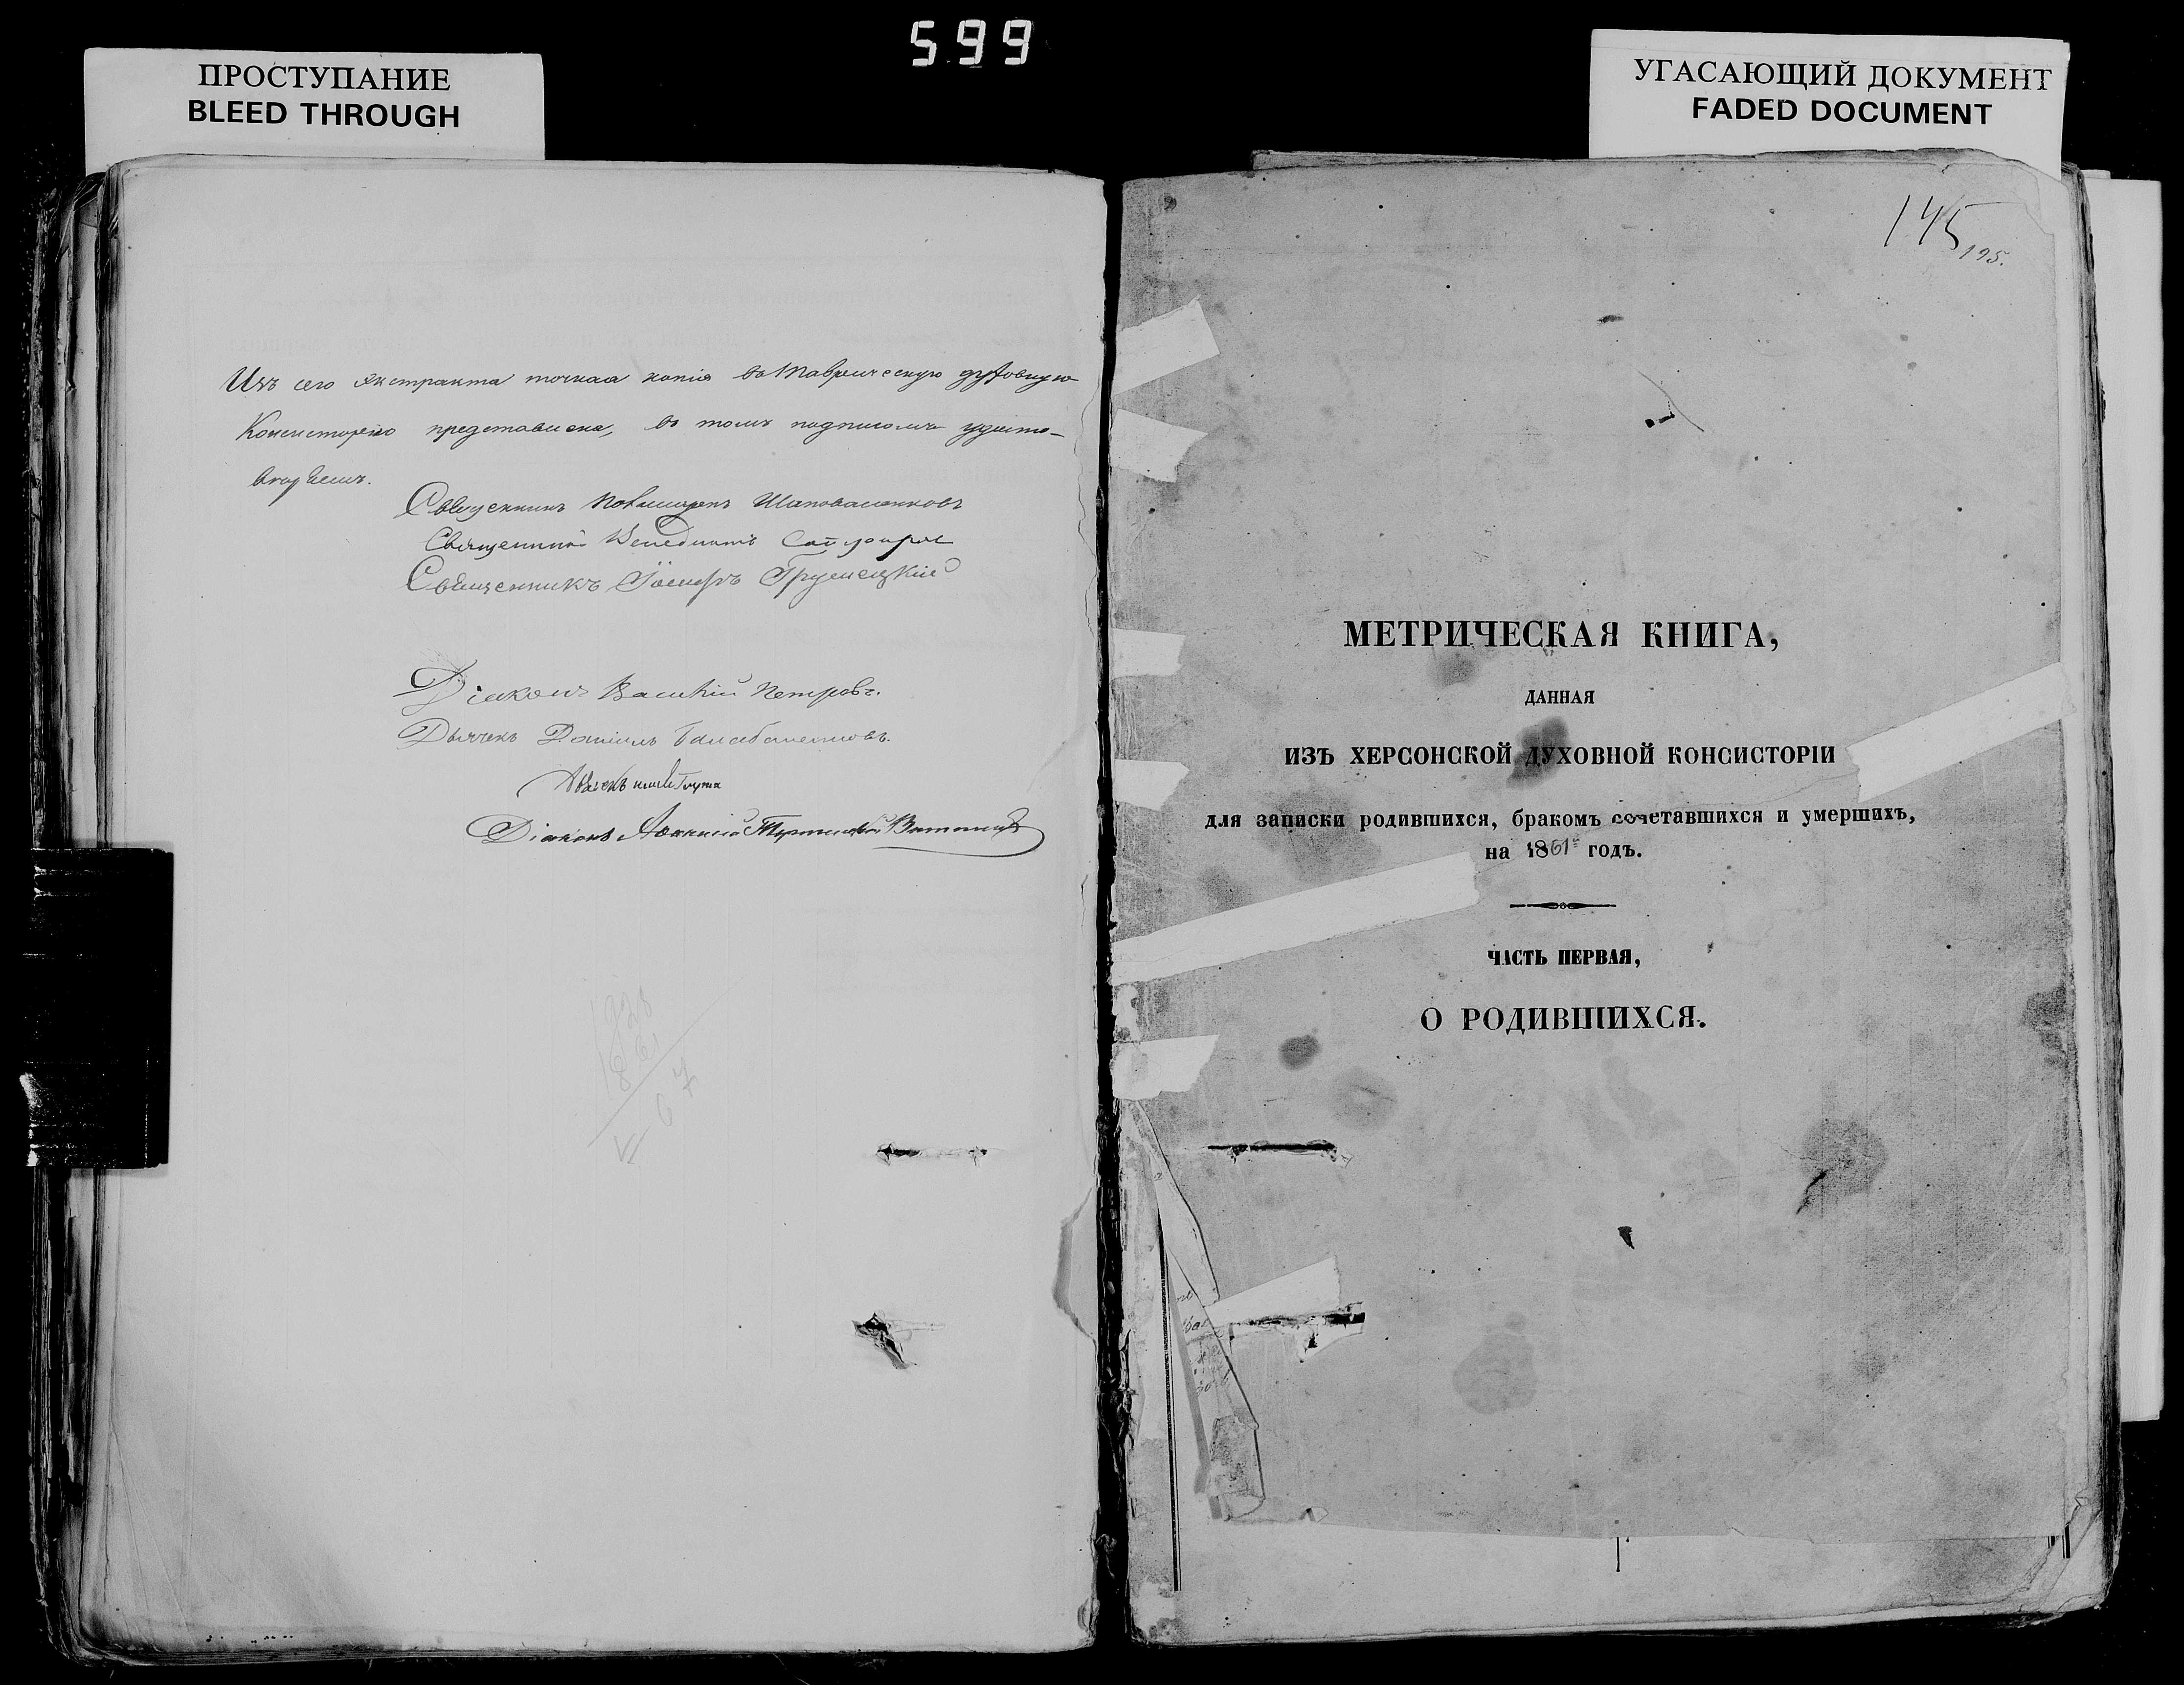 599
ПРОСТУПАНИЕ
BLEED THROUGH
УГАСАЮЩИЙ ДОКУМЕНТ
FADED DOCUMENT
Изъ сего экстракта точная копія въ Таврическую духовную
Консисторію представлена, въ томъ подписомъ удосто-
Священникъ Шаповаленковъ
Священникъ Венедиктъ
Священникъ Іосифъ
Діаконъ Василій Петровъ.
Дьячекъ Даніилъ
Діаконъ
145
195.
МЕТРИЧЕСКАЯ КНИГА,
ДАННАЯ
ИЗЪ ХЕРСОНСКОЙ ДУХОВНОЙ КОНСИСТОРІИ
для записки родившихся, бракомъ сочетавшихся и умершихъ,
на 1861 годъ.
ЧАСТЬ ПЕРВАЯ,
О РОДИВШИХСЯ.